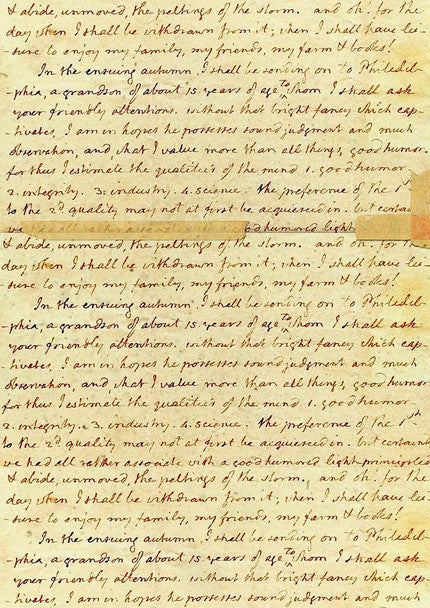 & abide, unmoved, the peltings of the storm. and oh! for the
day when I shall be withdrawn from it; when I shall have lei-
-sure to enjoy my family, my friends, my farm & books!
In the ensuing autumn, I shall be sending on to Philadel-
-phia, a grandson of about 15. years of age To whom I shall ask
your friendly attentions. without that bright fancy which cap-
-tivates, I am in hopes he possesses sound judgment and much
observation, and, what I value more than all things, good humor.
for thus I estimate the qualities of the mind 1. good humor
2. integrity. 3. industry. 4. science. the preference of the 1st
to the 2d quality may not at first be acquiesced in. but certain
we had all rather associate with a good humored light
& abide, unmoved, the peltings of the storm. and oh! for the
day when I shall be withdrawn from it; when I shall have lei-
-sure to enjoy my family, my friends, my farm & books!
In the ensuing autumn, I shall be sending on to Philadel-
-phia, a grandson of about 15. years of age To whom I shall ask
your friendly attentions. without that bright fancy which cap-
-tivates, I am in hopes he possesses sound judgment and much
observation, and, what I value more than all things, good humor
for thus I estimate the qualities of the mind 1. good humor
2. integrity. 3. industry. 4. science. the preference of the 1st
to the 2d quality may not at first be acquiesced in. but certainl
we had all rather associate with a good humored light-principled
& abide, unmoved, the peltings of the storm. and oh! for the
day when I shall be withdrawn from it; when I shall have lei-
-sure to enjoy my family, my friends, my farm & books!
In the ensuing autumn, I shall be sending on to Philadel-
-phia, a grandson of about 15. years of age To whom I shall ask
your friendly attentions. without that bright fancy which cap-
-tivates, I am in hopes he possesses sound judgment and much